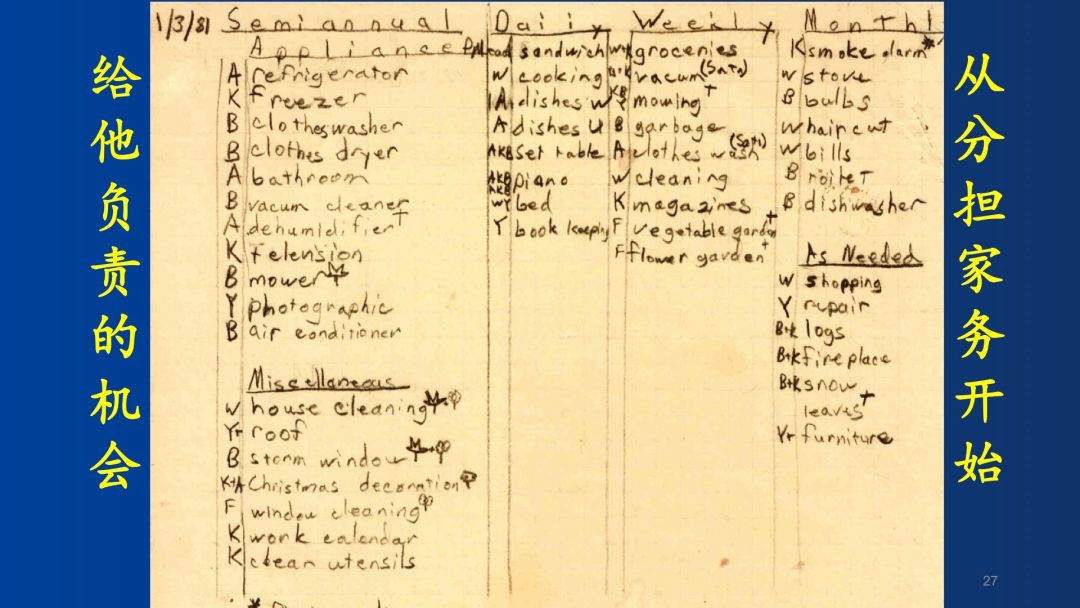 给他负责的机会
1/3/81 Semiannual
Appliance
A refrigerator
K freezer
B clotheswasher
B clothes dryer
A bathroom
B vacum cleaner
A dehumidifier+
K telension
B mower
Y photographic
B air conditioner
Miscellaneous
W house cleaning
Yr roof
B storm window
K+A Christmas decoration
F window cleaning
K work calendar
K clean utensils
Daily
sandwich
W cooking
dishes W
A dishes U
AKB set table
AKB piano
AKB
WY bed
Y book keeping
Weekly
W+K groceries
B+K vacum (Sat)
KB
Y mowing+
B garbage
A clothes wash
W cleaning
K magazines
F vegetable garden+
F flower garden+
Monthl
K smoke alarm*
W stove
B bulbs
W hair cut
W bills
B toilet
B dishwasher
As Needed
W shopping
Y repair
B+K logs
B+K fireplace
B+K snow
leaves+
Yr furniture
从分担家务开始
27